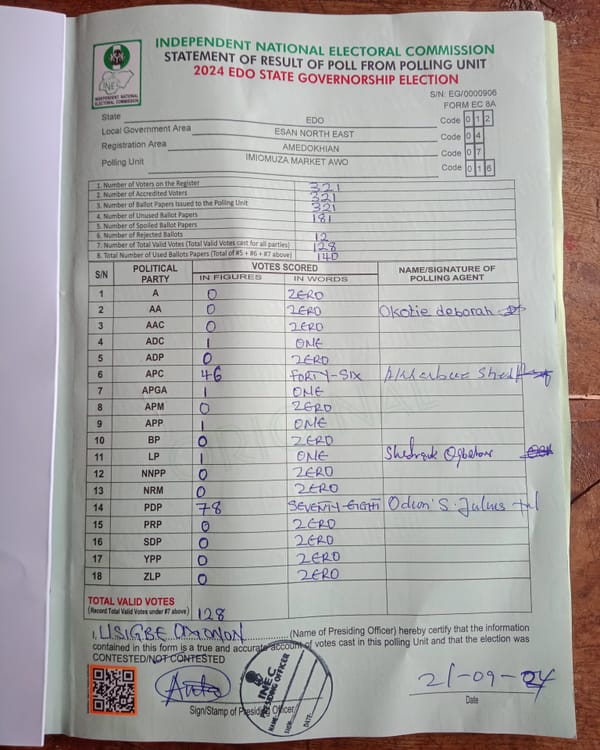 INDEPENDENT NATIONAL ELECTORAL COMMISSION
STATEMENT OF RESULT OF POLL FROM POLLING UNIT
2024 EDO STATE GOVERNORSHIP ELECTION
INEC
INDEPENDENT NATIONAL ELECTORAL COMMISSION
S/N: EG/0000906
FORM EC 8A
State EDO Code 0 1 2
Local Government Area ESAN NORTH EAST Code 0 4
Registration Area AMEDOKHIAN Code 0 7
Polling Unit IMIOMUZA MARKET AWO Code 0 1 6
1. Number of Voters on the Register 321
2. Number of Accredited Voters 321
3. Number of Ballot Papers Issued to the Polling Unit 321
4. Number of Unused Ballot Papers 181
5. Number of Spoiled Ballot Papers
6. Number of Rejected Ballots 12
7. Number of Total Valid Votes (Total Valid Votes cast for all parties) 128
8. Total Number of Used Ballots Papers (Total of #5 + #6 + #7 above) 140
S/N POLITICAL PARTY VOTES SCORED IN FIGURES IN WORDS NAME/SIGNATURE OF POLLING AGENT
1 A 0 ZERO
2 AA 0 ZERO Okotie deborah
3 AAC 0 ZERO
4 ADC 1 ONE
5 ADP 0 ZERO
6 APC 46 FORTY-SIX
7 APGA 1 ONE
8 APM 0 ZERO
9 APP 1 ONE
10 BP 0 ZERO
11 LP 1 ONE
12 NNPP 0 ZERO
13 NRM 0 ZERO
14 PDP 78 SEVENTY-EIGHT Odion S. Julius
15 PRP 0 ZERO
16 SDP 0 ZERO
17 YPP 0 ZERO
18 ZLP 0 ZERO
TOTAL VALID VOTES
(Record Total Valid Votes under #7 above) 128
I, USIGBE (Name of Presiding Officer) hereby certify that the information
contained in this form is a true and accurate account of votes cast in this polling Unit and that the election was
CONTESTED/NOT CONTESTED
INEC
PRESIDING OFFICER
NAME:
SIGN:
DATE:
21-09-24
Sign/Stamp of Presiding Officer
Date